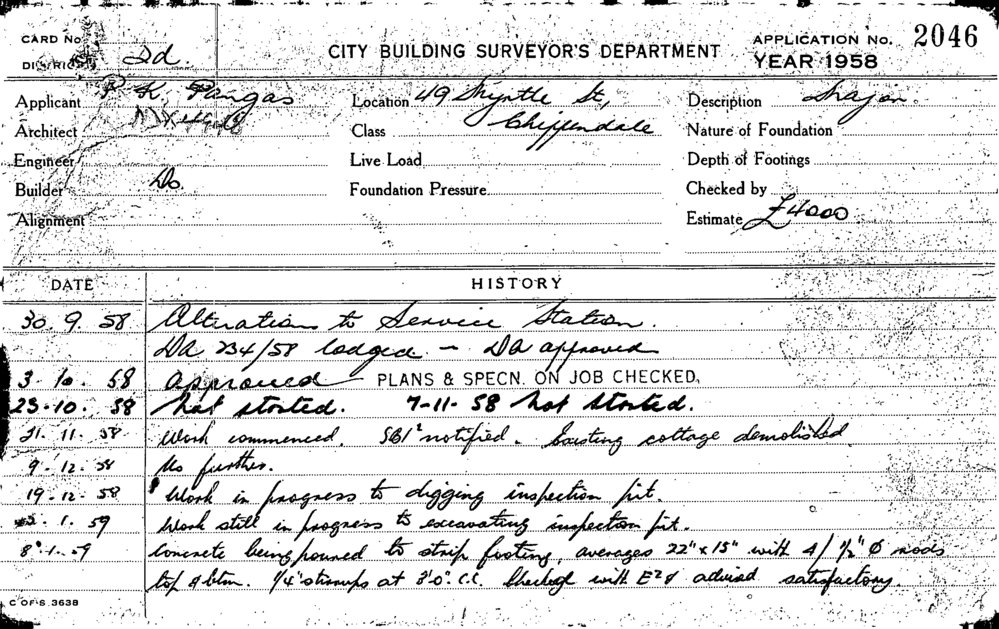 CARD No.
CITY BUILDING SURVEYOR'S DEPARTMENT
APPLICATION No. 2046
DISTRICT 2d
YEAR 1958
Applicant P. K. Pangas Location 49 Myrtle St, Description Major.
Architect Class Chippendale Nature of Foundation
Engineer Live Load Depth of Footings
Builder Do. Foundation Pressure Checked by
Alignment Estimate £4000
DATE HISTORY
30. 9. 58 Alterations to Service Station.
DA 234/58 lodged - DA approved
3. 10. 58 Approved PLANS & SPECN. ON JOB CHECKED.
23.10. 58 Not started. 7-11-58 Not started.
21. 11. 58 Work commenced. notified. Existing cottage demolished.
9. 12. 58 No further.
19.12.58 Work in progress to digging inspection pit.
5. 1. 59 Work still in progress to excavating inspection pit.
8.1.59 Concrete being poured to strip footing, averages 22" x 15" with 4/ ½" Ø rods
top & btm. ¼" stirrups at 3'0" C.C. with advised satisfactory.
C OF S. 3638